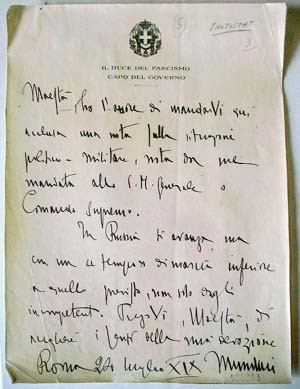 5
PHOTOSTAT
3
IL DUCE DEL FASCISMO
CAPO DEL GOVERNO
Maestà, ho l'onore di mandarVi qui
acclusa una nota sulla situazione
politico-militare, nota da me
mandata allo S. M. Generale o
Comando Supremo.
In Russia si avanza, ma
con un tempo di marcia inferiore
a quello previsto, non solo dagli
incompetenti. PregoVi, Maestà, di
accogliere i sensi della mia devozione
Roma 24 luglio XIX Mussolini